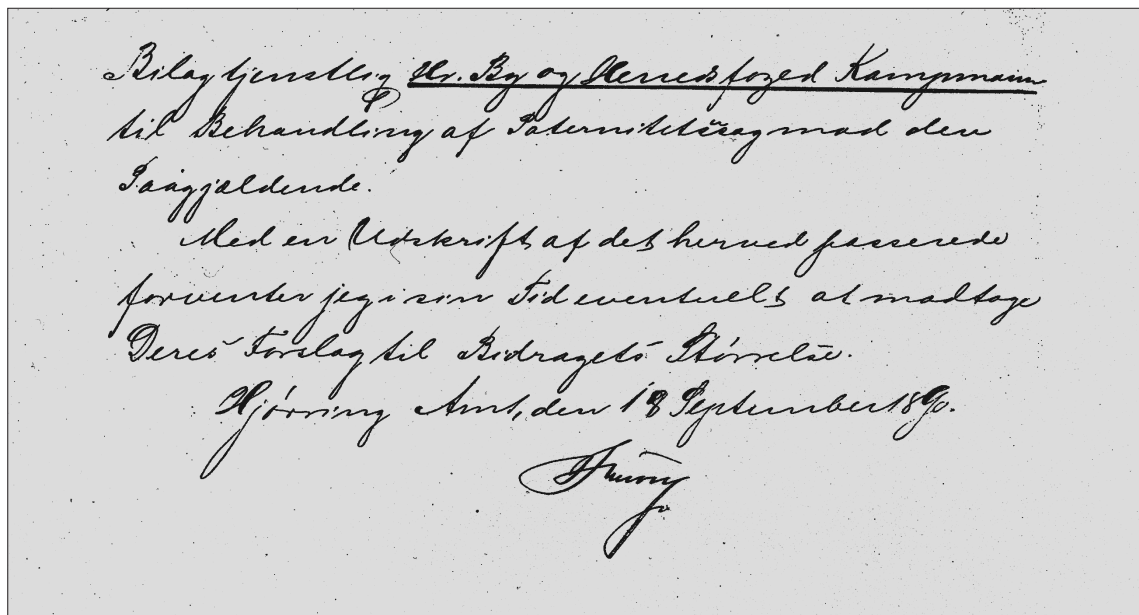 Bilag tjenstlig Hr. By og Herredsfoged Kampmann
til Behandling af Paternitetssag mod den
Paagjældende.
Med en Udskrift af det herved passerede
forventer jeg i sin Tid eventuelt at modtage
Deres Forslag til Bidragets Størrelse.
Hjørring Amt, den 18 September 1890.